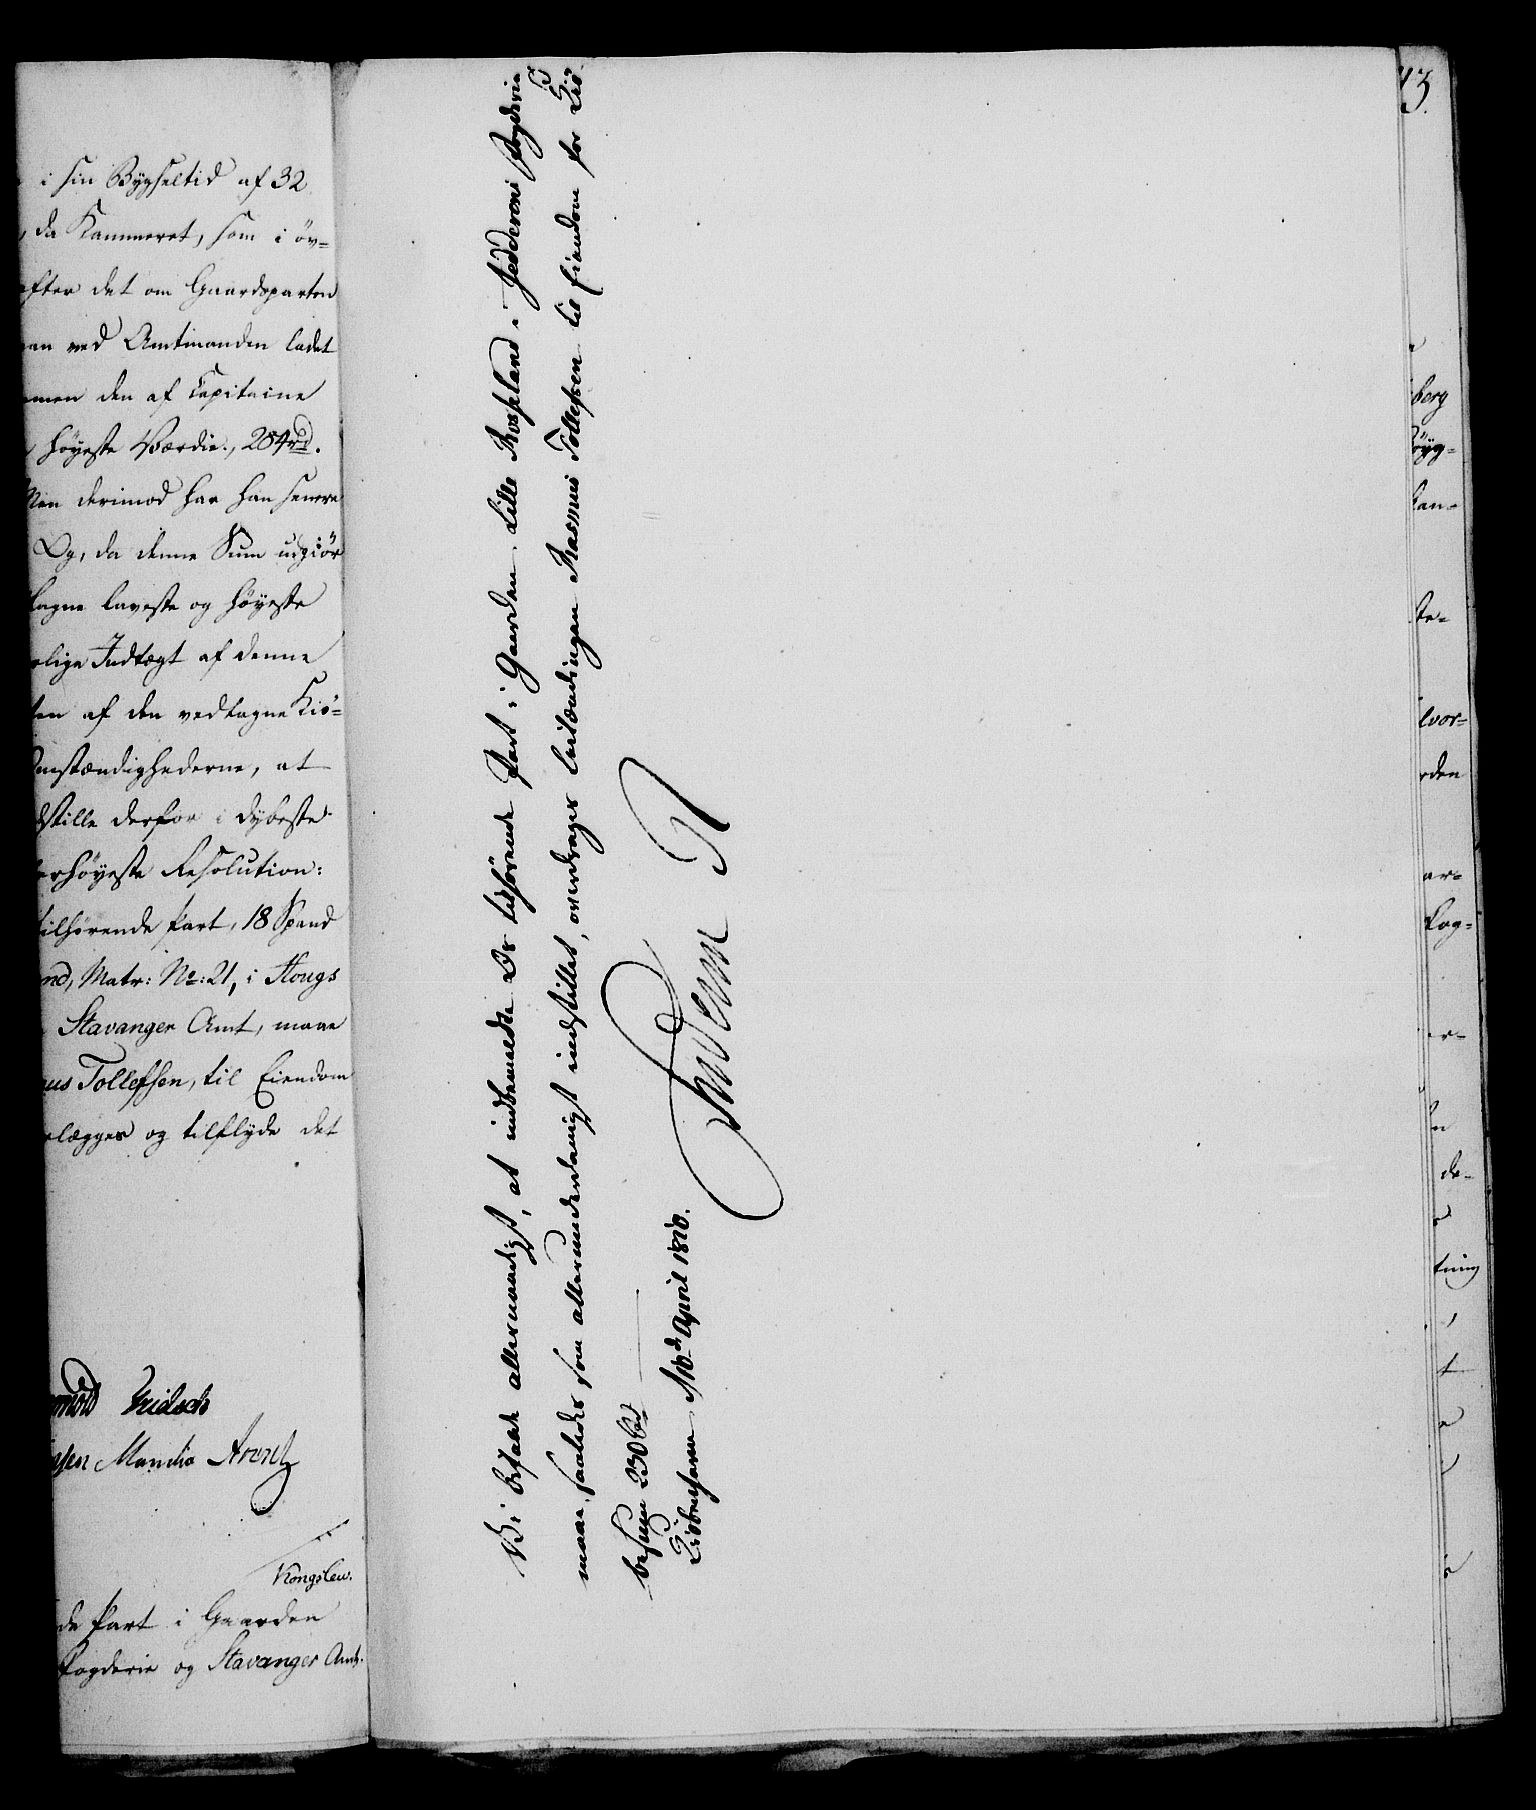 i sin Bygseltid af 32
, da Kammeret, som i öv=
after det om Gaardsparten
ved Amtmanden ladet
den af Capitaine
høyeste Værdie, 204 rd.
Men derimod har han senere
Og, da denne Sum udgiør
tagne laveste og høyeste
lige Indtægt af denne
ten af den vedtagne Kiö=
Omstændighederne, at
dstille derfor i dybeste
erhøyeste Resolution:
tilhørende Part, 18 Spand
nd, Matr: No: 21, i Hougs
Stavanger Amt, maae
us Tollefsen, til Eiendom
lægges og tilflyde det
Fridsch
sen Manthe Arentz
Kongslew.
de Part i Gaarden
Fogderie og Stavanger Amt.
Vi befale allernaadigst, at indbemeldte Os tilhørende Part i Gaarden Lille Roseland i Jedderens Fogderie
maae, saaledes som allerunderdanigst indstillet, overdrages Leilændingen Rasmus Tollefsen til Eiendom for Kiö
besum 230 rd
Kiöbenhavn, d. 10d April 1810.
Frederik R
13.
berg
öyg=
kan=
te=
lvor=
rden
ar=
Fog=
er=
n
de=
tning